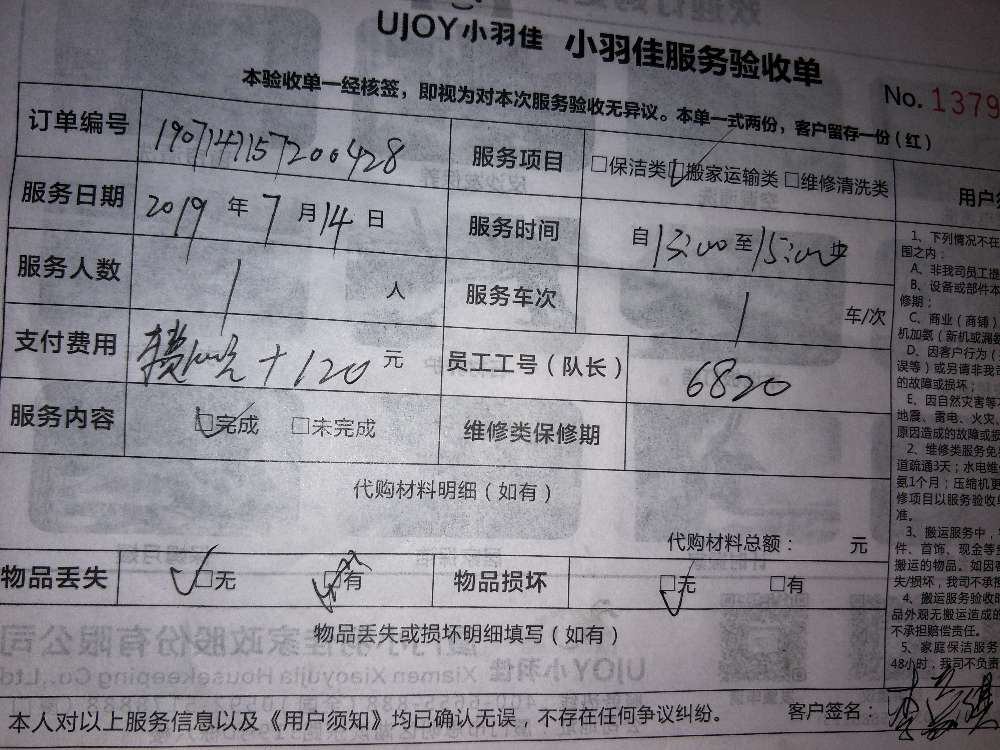 UJOY小羽佳 小羽佳服务验收单
本验收单一经核签，即视为对本次服务验收无异议。本单一式两份，客户留存一份（红）
No. 1379
订单编号 1907141157200428 服务项目 □保洁类 □搬家运输类 □维修清洗类
服务日期 2019 年 7 月 14 日 服务时间 自 13:00 至 15:00
服务人数 1 人 服务车次 1 车/次
支付费用 + 120 元 员工工号（队长） 6820
服务内容 □完成 □未完成 维修类保修期
代购材料明细（如有）
代购材料总额： 元
物品丢失 □无 □有 物品损坏 □无 □有
物品丢失或损坏明细填写（如有）
本人对以上服务信息以及《用户须知》均已确认无误，不存在任何争议纠纷。 客户签名：
用户
1、下列情况不在
围之内：
A、非我司员工提
B、设备或部件本
修期；
C、商业（商铺）
机加氨（新机或漏氨
D、因客户行为（
误等）或另请非我司
的故障或损坏；
E、因自然灾害等
地震、雷电、火灾、
原因造成的故障或损
2、维修类服务免
道疏通3天；水电维
氨1个月；压缩机更
修项目以服务验收
准。
3、搬运服务中，
件、首饰、现金等
搬运的物品。如因
失/损坏，我司不承担
4、搬运服务验收时
品外观无搬运造成的
不承担赔偿责任。
5、家庭保洁服务
48小时，我司不负责